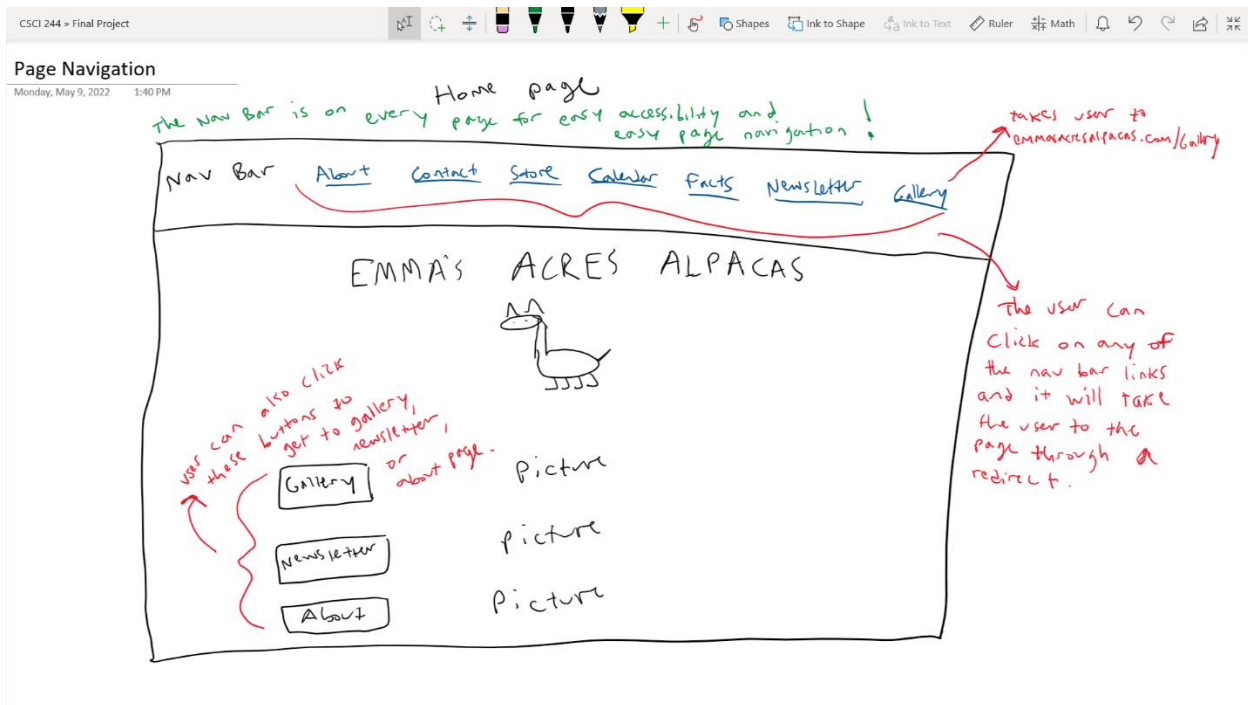 CSCI 244 » Final Project
Shapes
Ink to Shape
Ink to Text
Ruler
Math
Page Navigation
Monday, May 9, 2022 1:40 PM
Home page
The Nav Bar is on every page for easy accessibility and
easy page navigation!
takes user to
emmasacresalpacas.com/Gallery
Nav Bar About Contact Store Calendar Facts Newsletter Gallery
EMMA'S ACRES ALPACAS
The user can
Click on any of
the nav bar links
and it will take
the user to the
page through a
redirect.
user can also click
these buttons to
get to gallery,
newsletter,
or
about page.
Gallery Picture
Newsletter Picture
About Picture